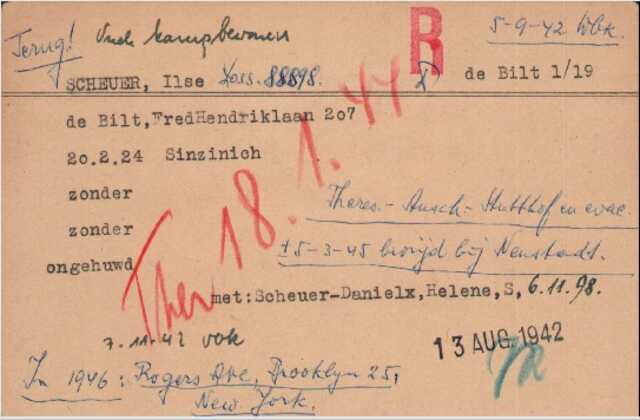 Terug! Oude kampbewoner
R
5-9-42 Wbk.
SCHEUER, Ilse doss. 88898. de Bilt 1/19
de Bilt,FredHendriklaan 207
20.2.24 Sinzinich
zonder
zonder
ongehuwd
Ther 18.1.44
Theres.- Ausch.- Stutthof en evac.
± 5-3-45 bevrijd bij Neustadt.
met:Scheuer-Danielx,Helene,S, 6.11.98.
7.11.42 vok
13 AUG. 1942
In 1946: Rogers Ave, Brooklyn 25,
New York.